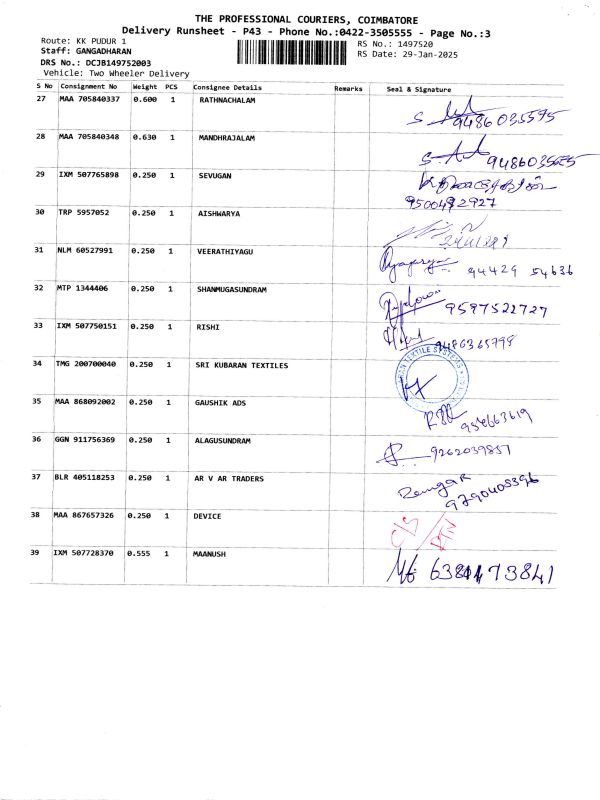 THE PROFESSIONAL COURIERS, COIMBATORE
Delivery Runsheet - P43 - Phone No.:0422-3505555 - Page No.:3
Route: KK PUDUR 1
RS No.: 1497520
Staff: GANGADHARAN
RS Date: 29-Jan-2025
DRS No.: DCJB149752003
Vehicle: Two Wheeler Delivery
S No Consignment No Weight PCS Consignee Details Remarks Seal & Signature
27 MAA 705840337 0.600 1 RATHNACHALAM
9486035595
28 MAA 705840348 0.630 1 MANDHRAJALAM
29 IXM 507765898 0.250 1 SEVUGAN
30 TRP 5957052 0.250 1 AISHWARYA
31 NLM 60527991 0.250 1 VEERATHIYAGU
94429 54636
32 MTP 1344406 0.250 1 SHANMUGASUNDRAM
9597522727
33 IXM 507750151 0.250 1 RISHI
34 TMG 200700040 0.250 1 SRI KUBARAN TEXTILES
TEXTILE SYSTEMS
35 MAA 868092002 0.250 1 GAUSHIK ADS
36 GGN 911756369 0.250 1 ALAGUSUNDRAM
9262039857
37 BLR 405118253 0.250 1 AR V AR TRADERS
9790405396
38 MAA 867657326 0.250 1 DEVICE
C/S
RTN
39 IXM 507728370 0.555 1 MAANUSH